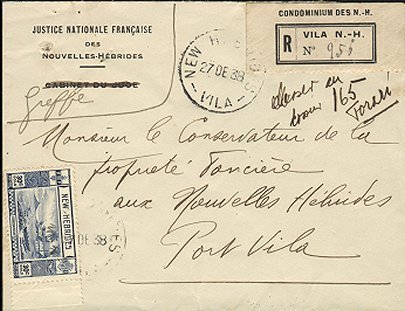 JUSTICE NATIONALE FRANÇAISE
DES
NOUVELLES-HÉBRIDES
CABINET DU JUGE
Greffe
CONDOMINIUM DES N.-H.
R
VILA N.-H.
N° 951
NEW HEBRIDES
27 DE 38
VILA
165
Monsieur le Conservateur de la
Propriété Foncière
aux Nouvelles Hébrides
Port Vila
NEW-HEBRIDES
DE 38